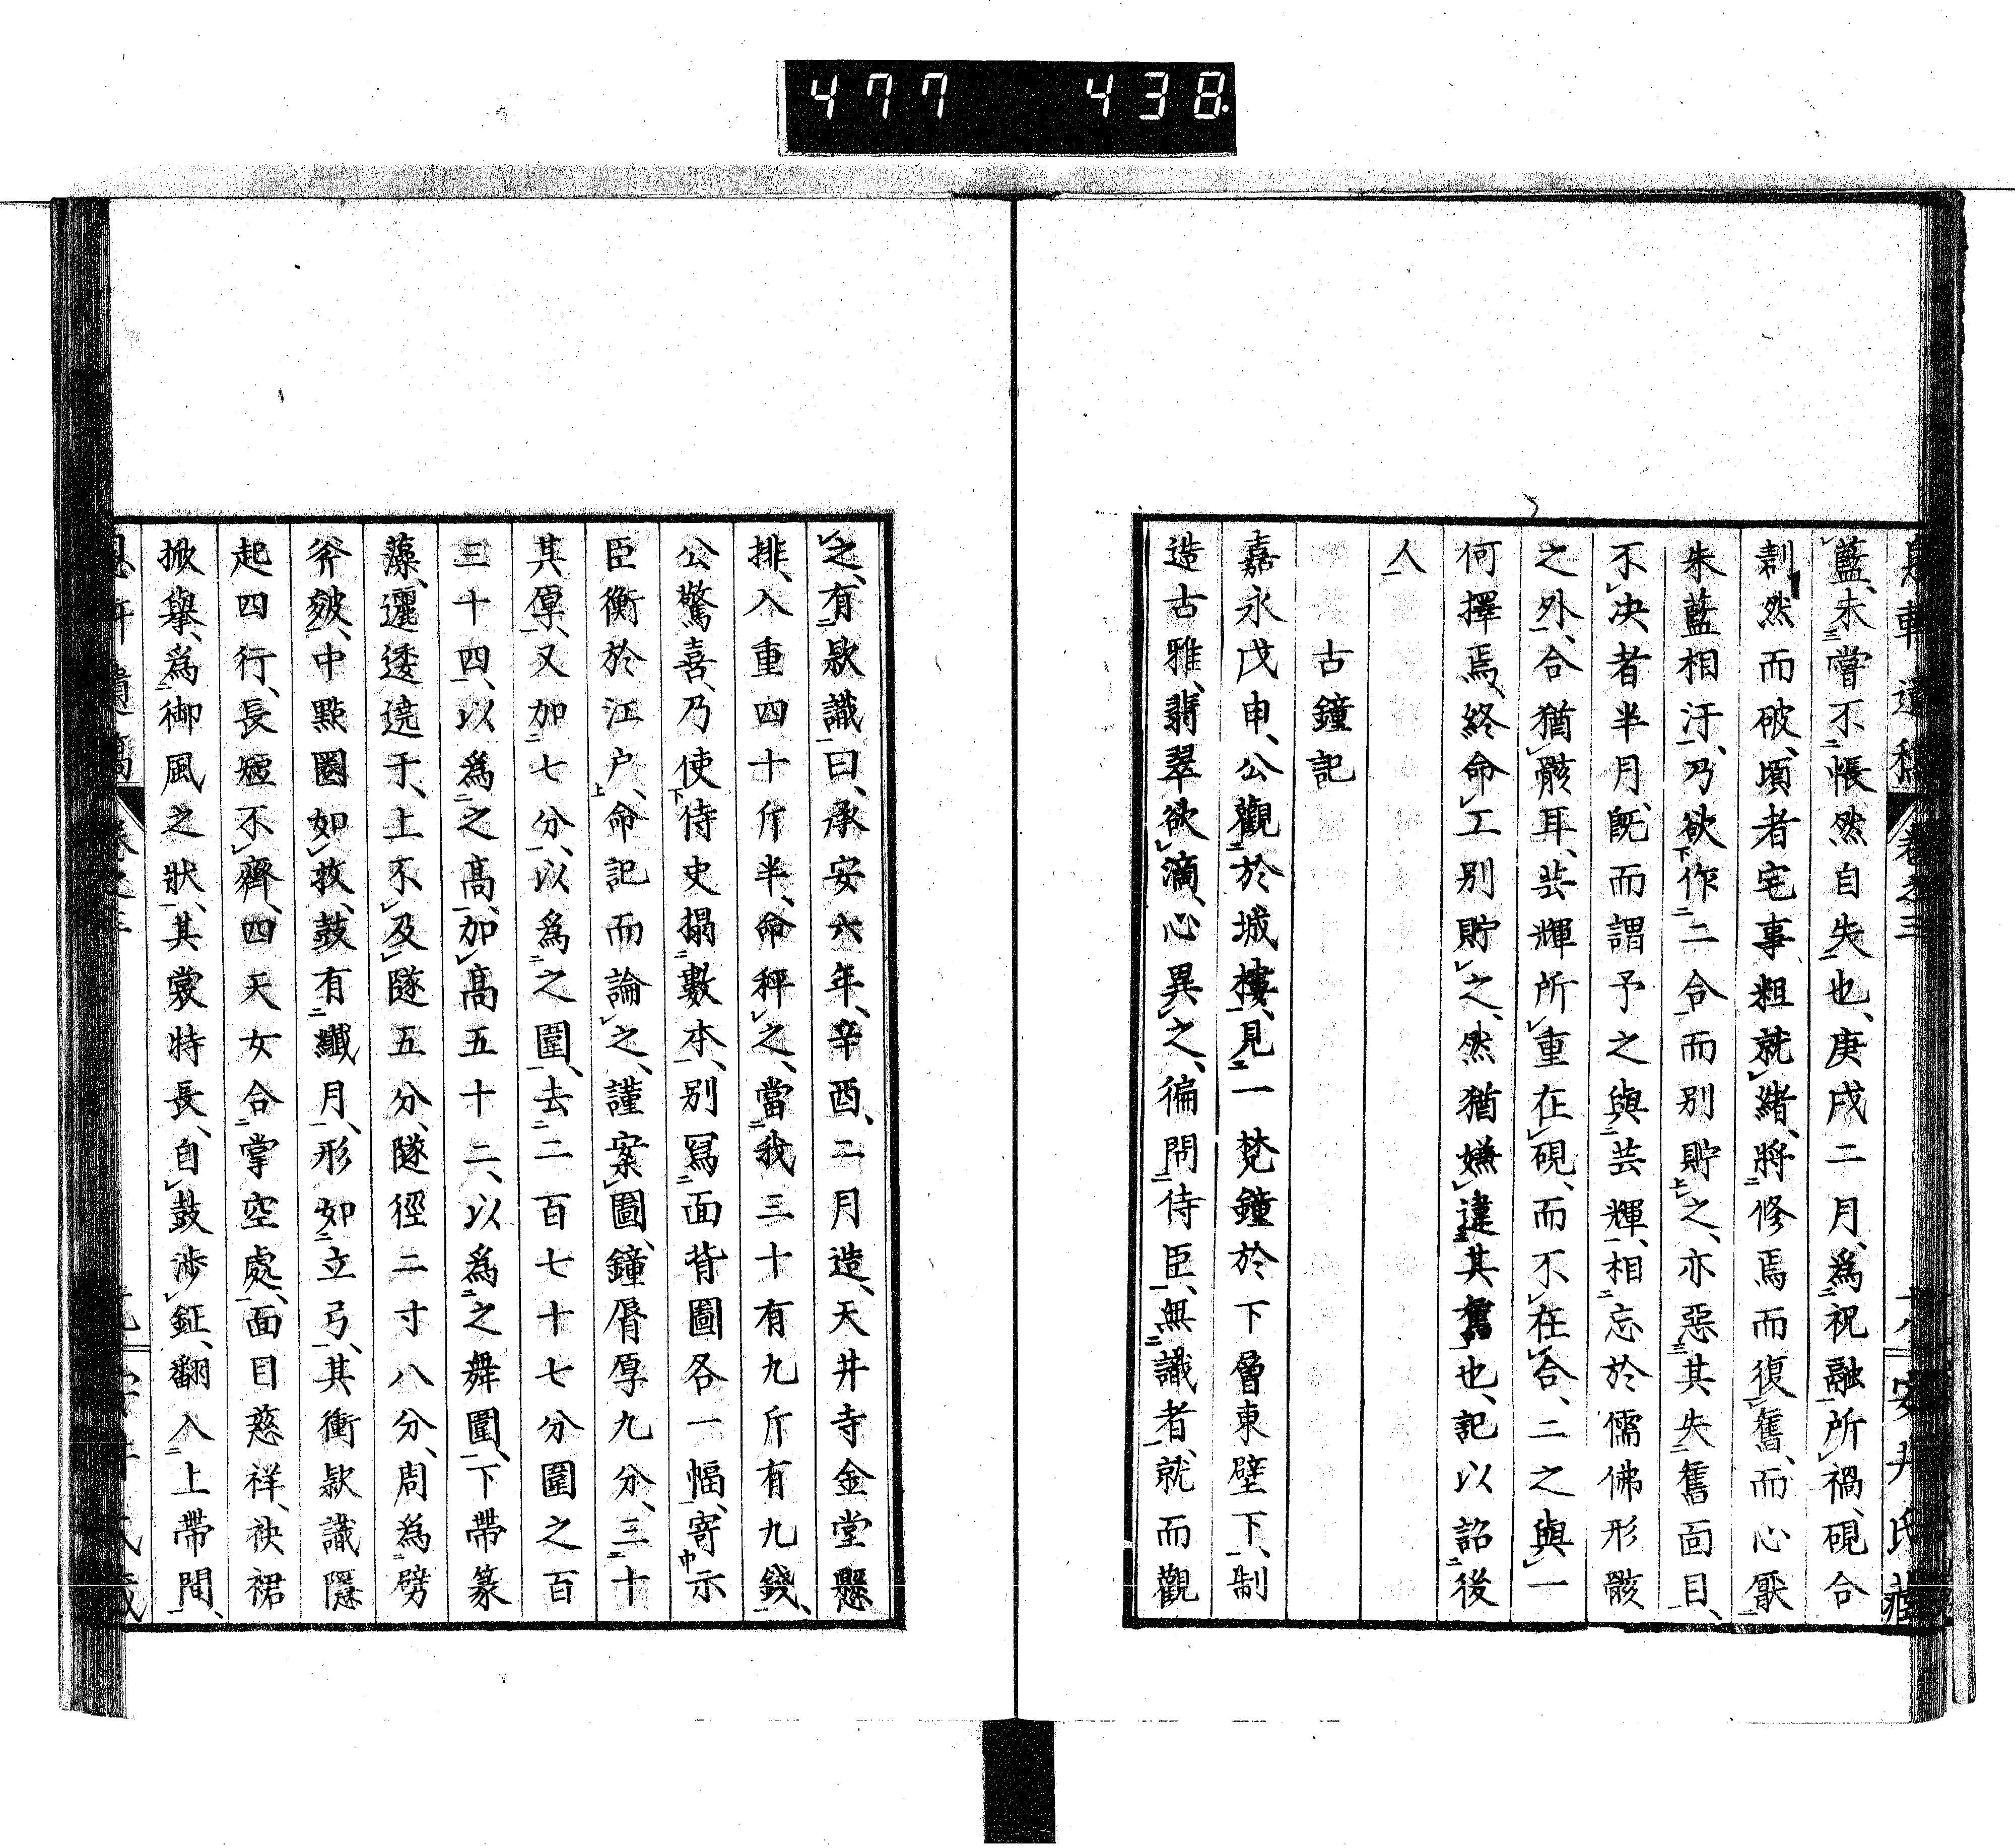 477 438
藍、未嘗不悵然自失也、庚戌二月、為祝融所禍、硯合
割然而破、頃者宅事粗就緒、將修焉而復舊、而心厭
朱藍相汙、乃欲作二合而別貯之、亦惡其失舊面目、
不決者半月、既而謂予之與芸輝、相忘於儒佛形骸
之外、合猶骸耳、芸輝所重在硯、而不在合、二之與一
何擇焉、終命工別貯之、然猶嫌違其舊也、記以詔後
人
古鐘記
嘉永戊申、公觀於城樓、見一梵鐘於下層東壁下、制
造古雅、翡翠欲滴、心異之、徧問侍臣、無識者、就而觀
之、有款識曰、承安六年、辛酉、二月造、天井寺金堂懸
排、入重四十斤半、命秤之、當我三十有九斤有九錢、
公驚喜、乃使侍史搨數本、別寫面背圖各一幅、寄示
臣衡於江户、命記而論之、謹案圖、鐘脣厚九分、三十
其厚、又加七分、以為之圍、去二百七十七分圍之百
三十四、以為之高、加高五十二、以為之舞圍、下帶篆
藻、邐逶遶于、上不及隧五分、隧徑二寸八分、周為劈
斧皴、中點圈如枚、鼓有纖月、形如立弓、其衝款識隱
起四行、長短不齊、四天女合掌空處、面目慈祥、袂裙
掀舉、為御風之狀、其裳特長、自鼓渉鉦、翻入上帶間、